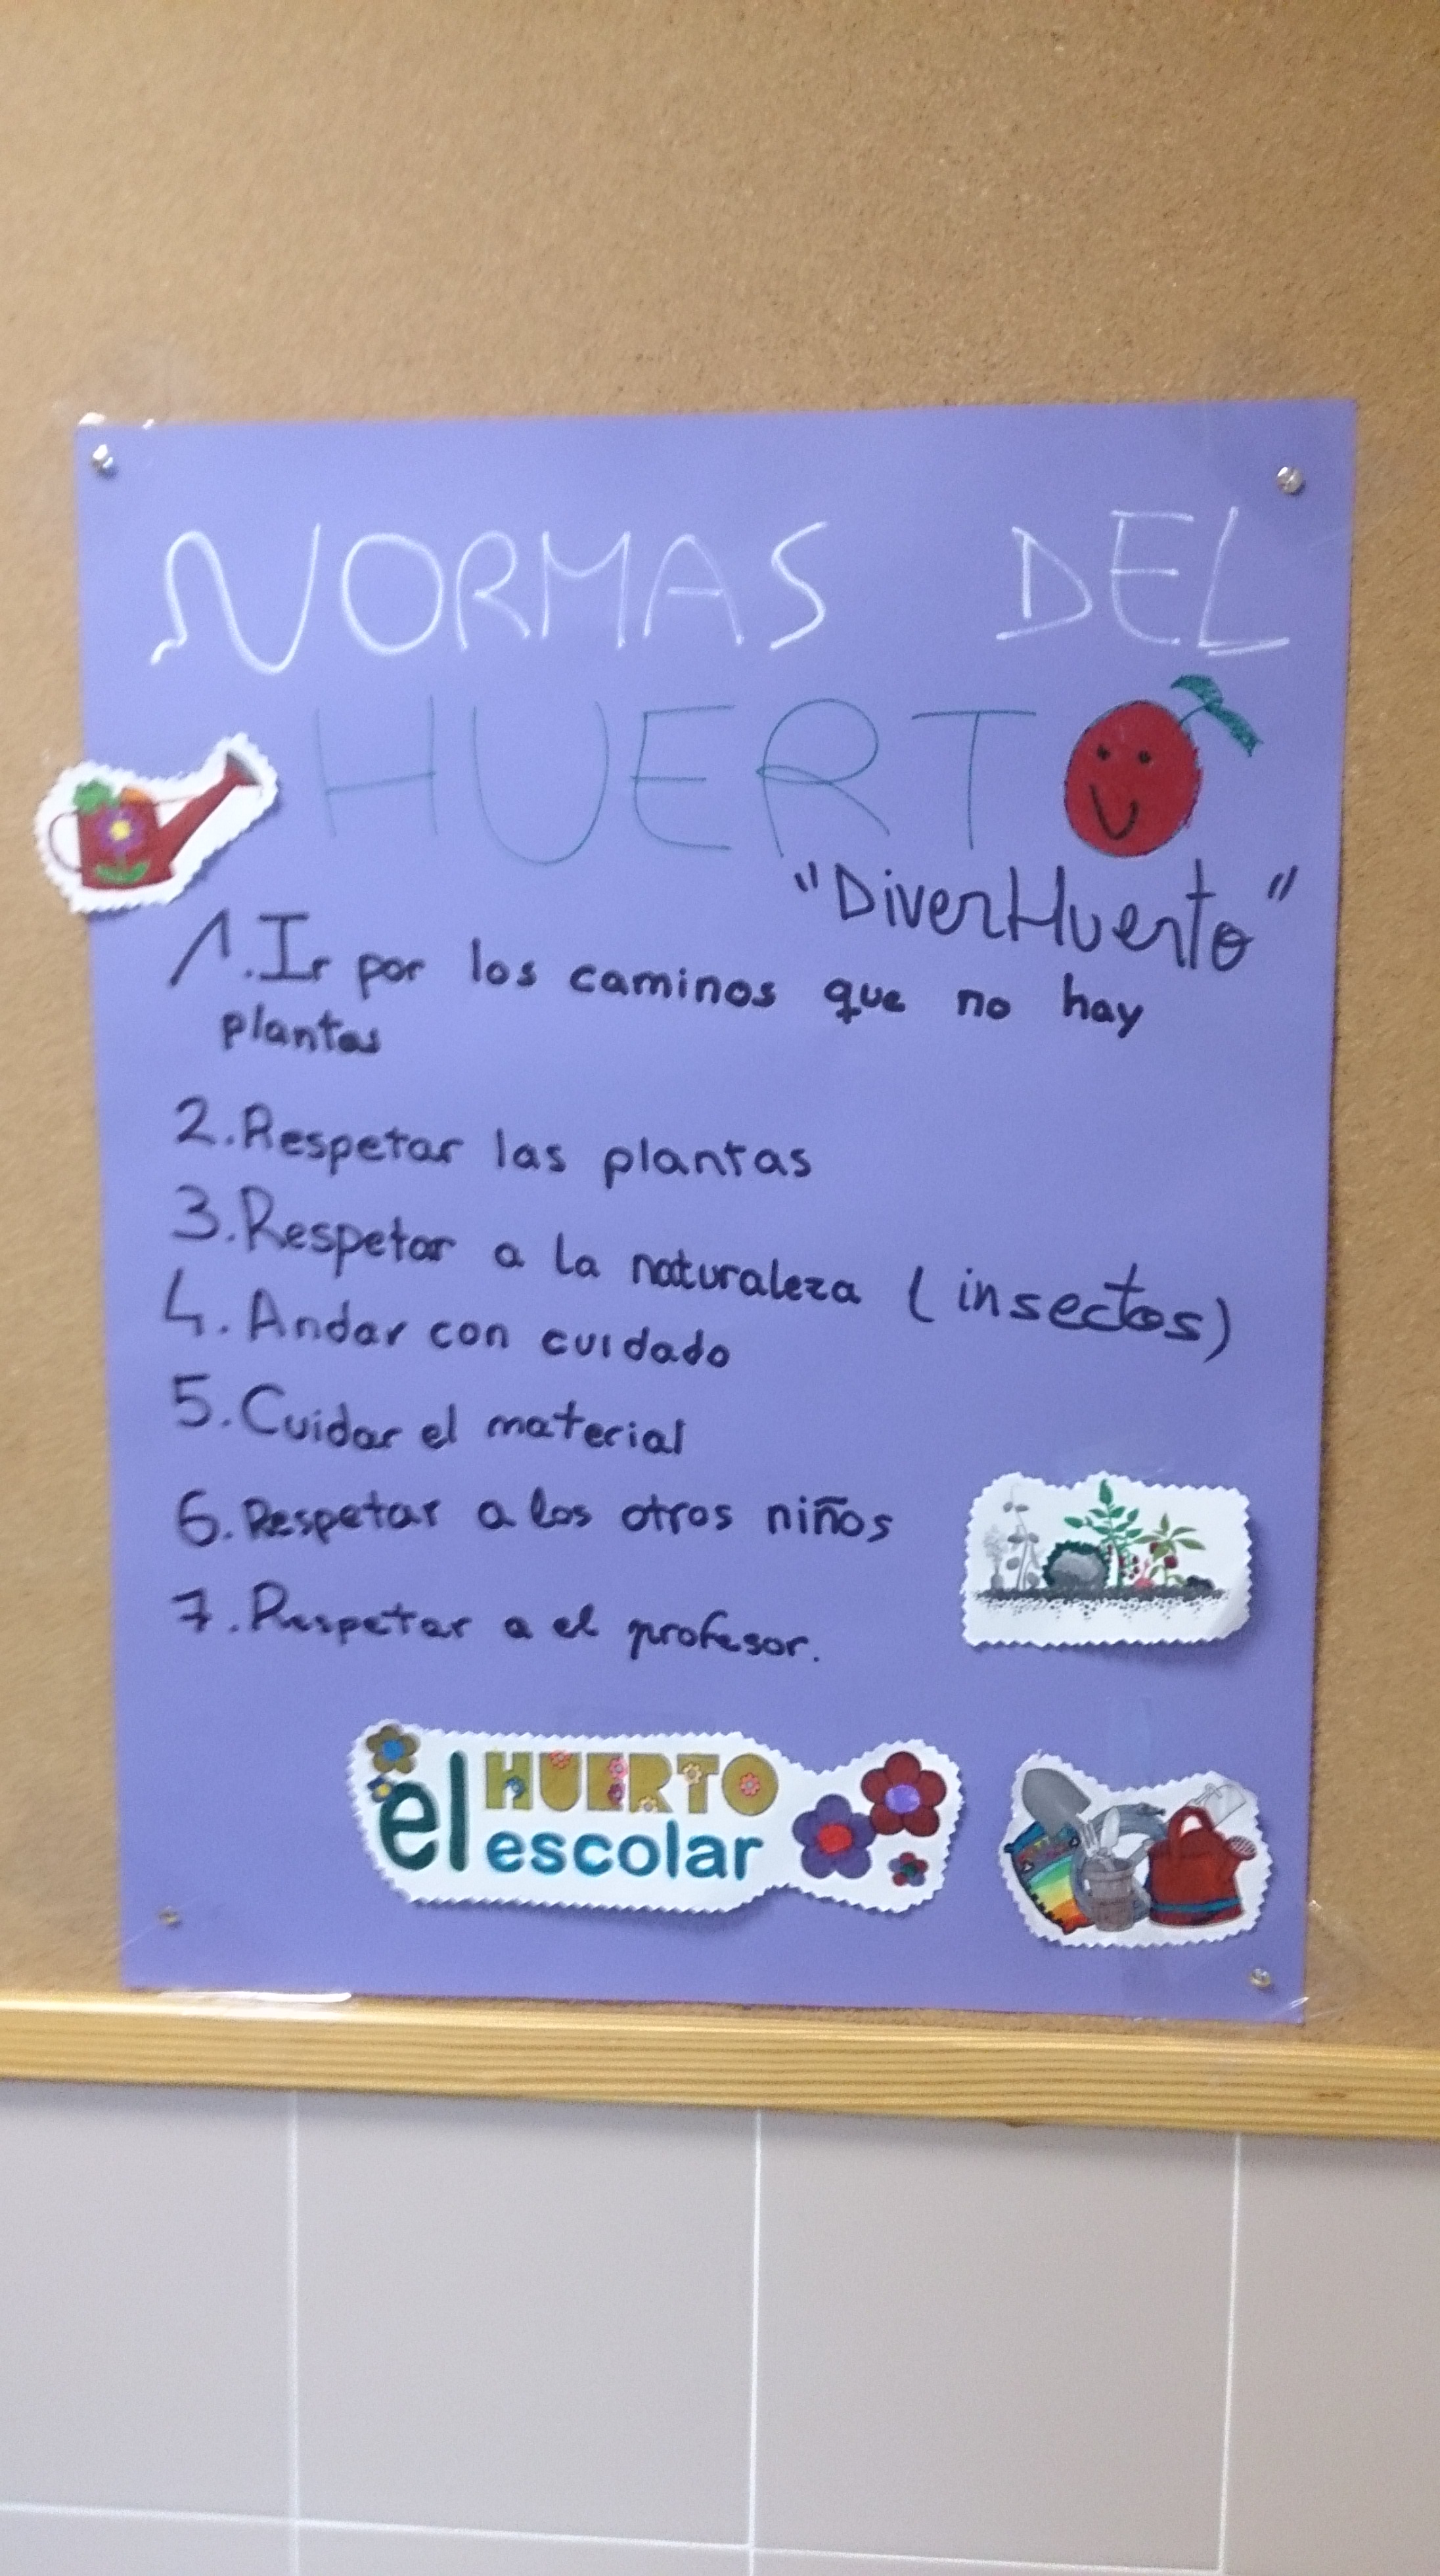 NORMAS DEL
HUERTO
"DiverHuerto"
1. Ir por los caminos que no hay
plantas
2. Respetar las plantas
3. Respetar a la naturaleza (insectos)
4. Andar con cuidado
5. Cuidar el material
6. Respetar a los otros niños
7. Respetar a el profesor.
el HUERTO
escolar